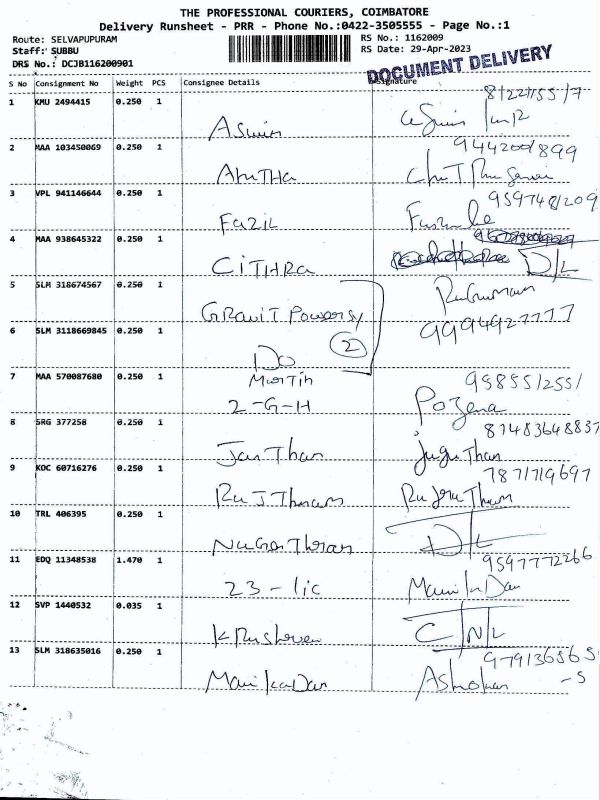 THE PROFESSIONAL COURIERS, COIMBATORE
Delivery Runsheet - PRR - Phone No.:0422-3505555 - Page No.:1
Route: SELVAPUPURAM RS No.: 1162009
Staff: SUBBU RS Date: 29-Apr-2023
DRS No.: DCJB116200901
DOCUMENT DELIVERY
S No Consignment No Weight PCS Consignee Details Signature
1 KMU 2494415 0.250 1
Aswin
2 MAA 103450069 0.250 1 9442001899
3 VPL 941146644 0.250 1 9597481209
Fazil
4 MAA 938645322 0.250 1
CiTHRA D/L
5 SLM 318674567 0.250 1
Gravit Powersy
6 SLM 3118669845 0.250 1 9994927777
Do 2
7 MAA 570087680 0.250 1 Martin 9585512551
2-G-H
8 SRG 377258 0.250 1 81483648837
Jan Than
9 KOC 60716276 0.250 1 7871719697
10 TRL 406395 0.250 1
D/L
11 EDQ 11348538 1.470 1 9597772266
23-lic Manikandan
12 SVP 1440532 0.035 1
C/N/L
13 SLM 318635016 0.250 1 979136565
-5
Manikandan Ashokan